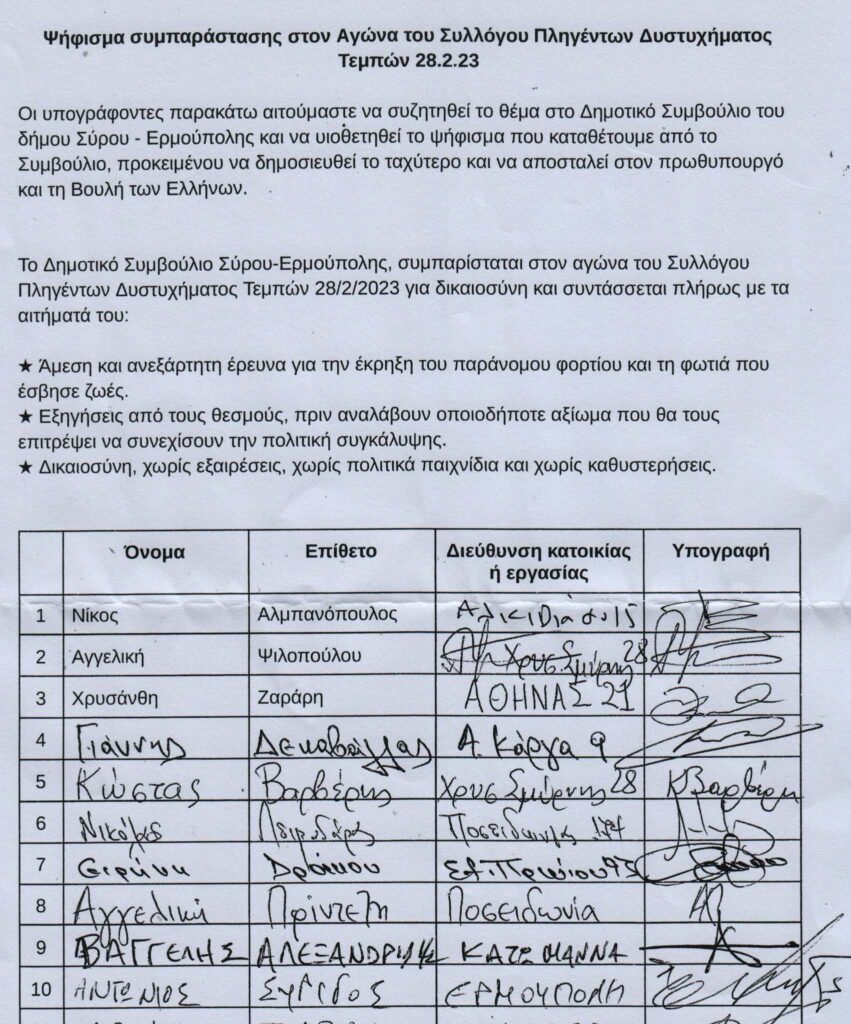 Ψήφισμα συμπαράστασης στον Αγώνα του Συλλόγου Πληγέντων Δυστυχήματος
Τεμπών 28.2.23
Οι υπογράφοντες παρακάτω αιτούμαστε να συζητηθεί το θέμα στο Δημοτικό Συμβούλιο του
δήμου Σύρου - Ερμούπολης και να υιοθετηθεί το ψήφισμα που καταθέτουμε από το
Συμβούλιο, προκειμένου να δημοσιευθεί το ταχύτερο και να αποσταλεί στον πρωθυπουργό
και τη Βουλή των Ελλήνων.
Το Δημοτικό Συμβούλιο Σύρου-Ερμούπολης, συμπαρίσταται στον αγώνα του Συλλόγου
Πληγέντων Δυστυχήματος Τεμπών 28/2/2023 για δικαιοσύνη και συντάσσεται πλήρως με τα
αιτήματά του:
★ Άμεση και ανεξάρτητη έρευνα για την έκρηξη του παράνομου φορτίου και τη φωτιά που
έσβησε ζωές.
★ Εξηγήσεις από τους θεσμούς, πριν αναλάβουν οποιοδήποτε αξίωμα που θα τους
επιτρέψει να συνεχίσουν την πολιτική συγκάλυψης.
★ Δικαιοσύνη, χωρίς εξαιρέσεις, χωρίς πολιτικά παιχνίδια και χωρίς καθυστερήσεις.
Όνομα Επίθετο Διεύθυνση κατοικίας Υπογραφή
ή εργασίας
1 Νίκος Αλμπανόπουλος
2 Αγγελική Ψιλοπούλου Χρυσ Σμύρνης 28
3 Χρυσάνθη Ζαράρη ΑΘΗΝΑΣ 21
4 Γιάννης Δεκαβάλλας Α. Κάργα 9
5 Κώστας Βαρβέρης Χρυσ Σμύρνης 28 Κ Βαρβέρη
6 Νικόλας
7 Ειρήνη Δράκου Στ. Πρωίου 93
8 Αγγελική Πρίντεζη Ποσειδωνία
9 ΒΑΓΓΕΛΗΣ ΚΑΤΩ ΜΑΝΝΑ
10 ΑΝΤΩΝΙΟΣ ΕΡΜΟΥΠΟΛΗ